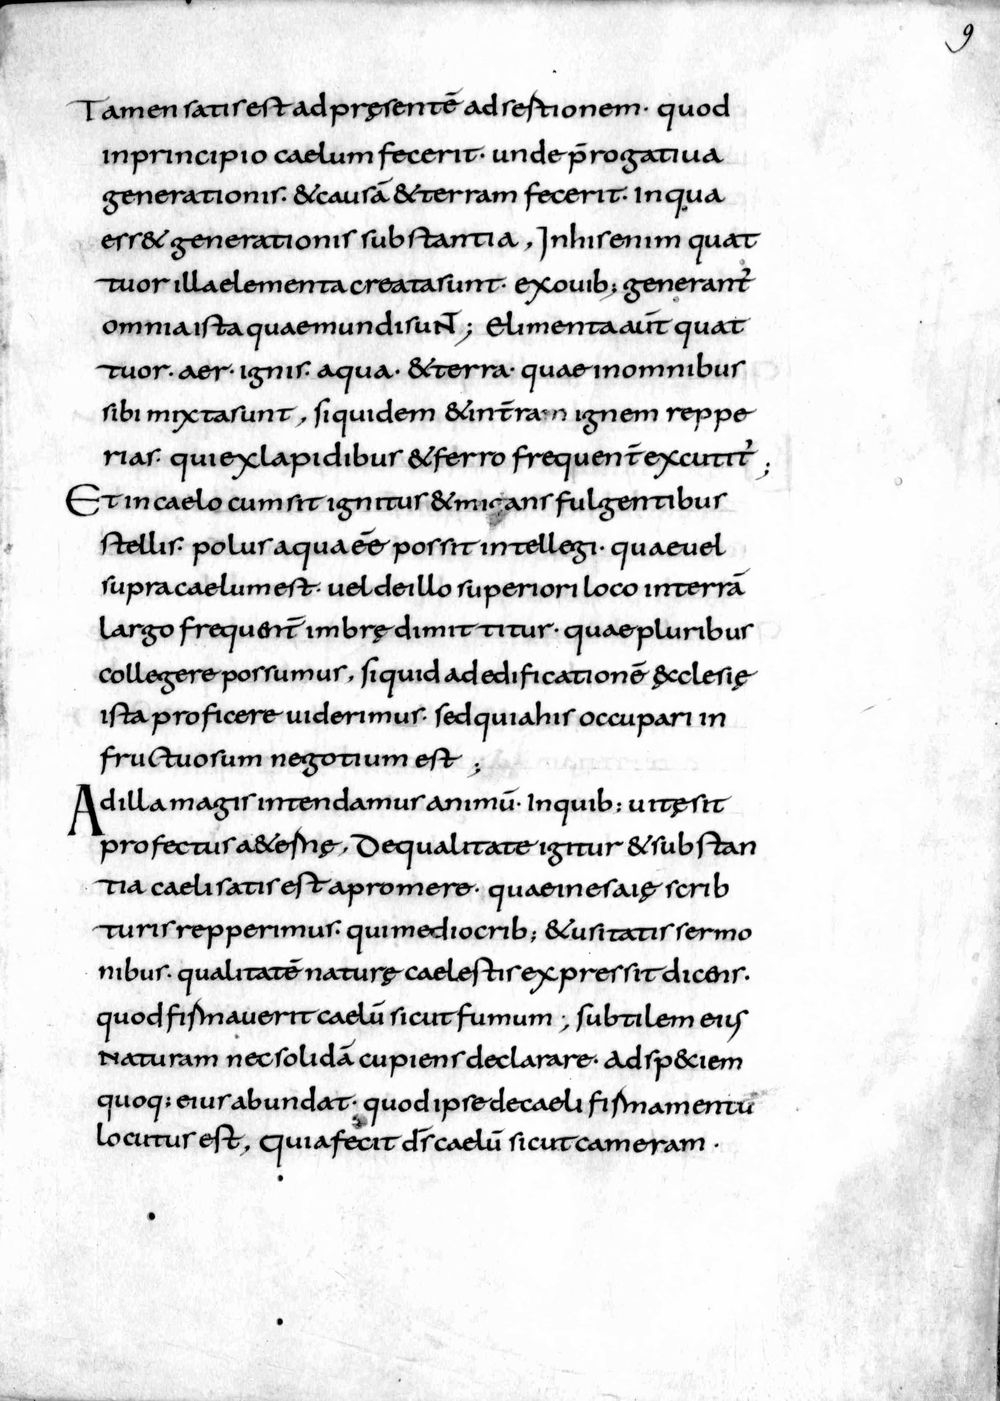 9
Tamen satis est ad pręsentē adsestionem· quod
in principio caelum fecerit· unde p̄rogatiua
generationis· & causā & terram fecerit· In qua
ess& generationis substantia, In his enim quat
tuor illa elementa creata sunt· ex ouib; generant᷒
omnia ista quae mundi suNT; Elimenta aūt quat
tuor· aer· ignis· aqua· & terra· quae in omnibus
sibi mixta sunt, siquidem & int̄ram ignem reppe
rias· qui ex lapidibus & ferro frequent̄ excutit᷒;
Et in caelo cum sit ignitus & micans fulgentibus
stellis· polus aqua eē possit intellegi· quae uel
supra caelum est· uel de illo superiori loco in terrā
largo frequent̄ imbrę dimittitur· quae pluribus
collegere possumus, siquid ad edificationē ęcclesię
ista proficere uiderimus· sed quia his occupari in
fructuosum negotium est;
Ad illa magis intendamus animū· In quib; uitę sit
profectus a&ernę, De qualitate igitur & substan
tia caeli satis est apromere· quae in esaię scrib
turis repperimus· qui mediocrib; & usitatis sermo
nibus· qualitatē naturę caelestis expressit dicens·
quod firmauerit caelū sicut fumum; subtilem eius
Naturam nec solidā cupiens declarare· Ad sp&iem
quoq; eius abundat· quod ipse de caeli firmamentū
locutus est, Quia fecit d̄s caelū sicut cameram·